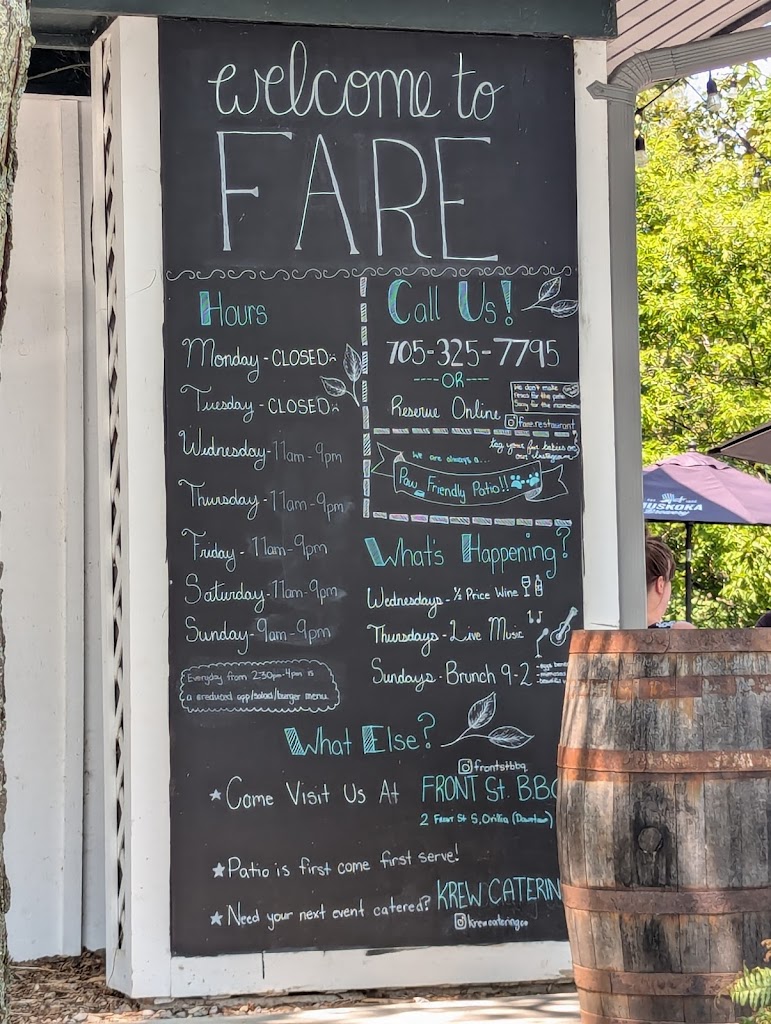 welcome to
FARE
Hours
Monday - CLOSED
Tuesday - CLOSED
Wednesday - 11am - 9pm
Thursday - 11am - 9pm
Friday - 11am - 9pm
Saturday - 11am - 9pm
Sunday - 9am - 9pm
Everyday from 2:30pm-4pm is
a reduced app/salad/burger menu
Call Us!
705-325-7795
----OR----
We don't make
for the patio
Sorry for the
Reserve Online
fare.restaurant
tag your fur babies on
our Instagram
We are always a...
Paw Friendly Patio!!
What's Happening?
Wednesdays - ½ Price Wine
Thursdays - Live Music
Sundays - Brunch 9-2
What Else?
frontstbbq
Come Visit Us At FRONT St. B.B.
2 Front St S, Orillia (Downtown)
Patio is first come first serve!
Need your next event catered? KREW CATERIN
krewcateringco
MUSKOKA
Brewery